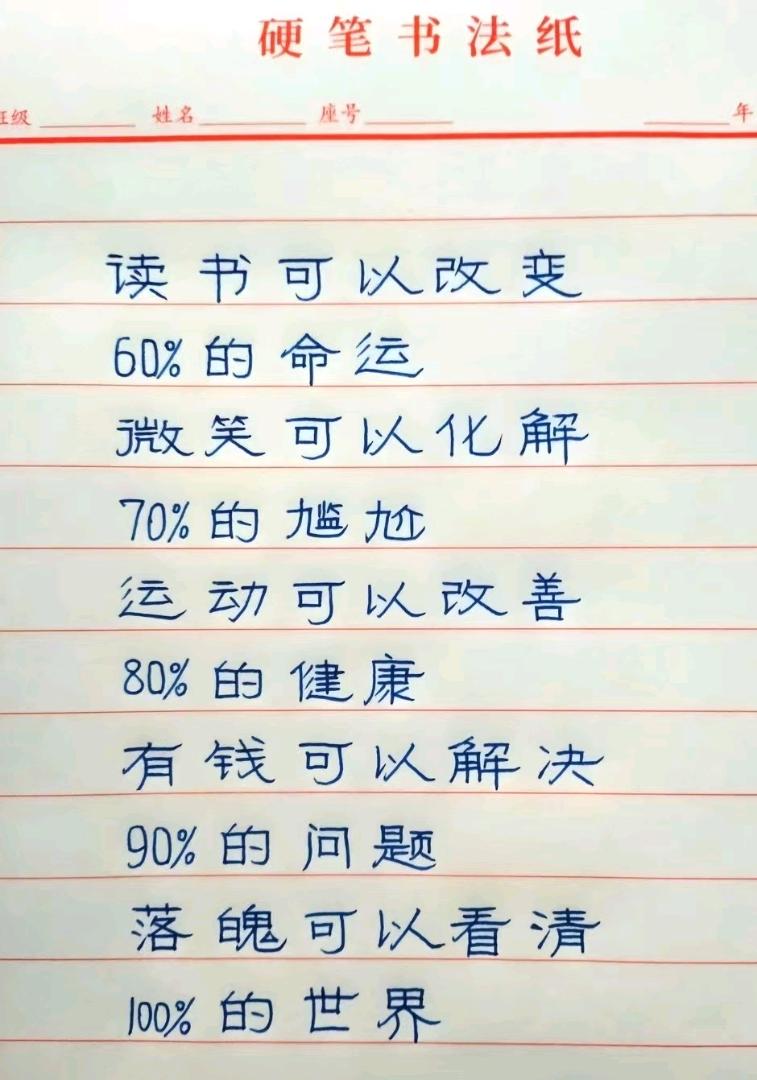 硬笔书法纸
班级 姓名 座号 年
读书可以改变
60%的命运
微笑可以化解
70%的尴尬
运动可以改善
80%的健康
有钱可以解决
90%的问题
落魄可以看清
100%的世界